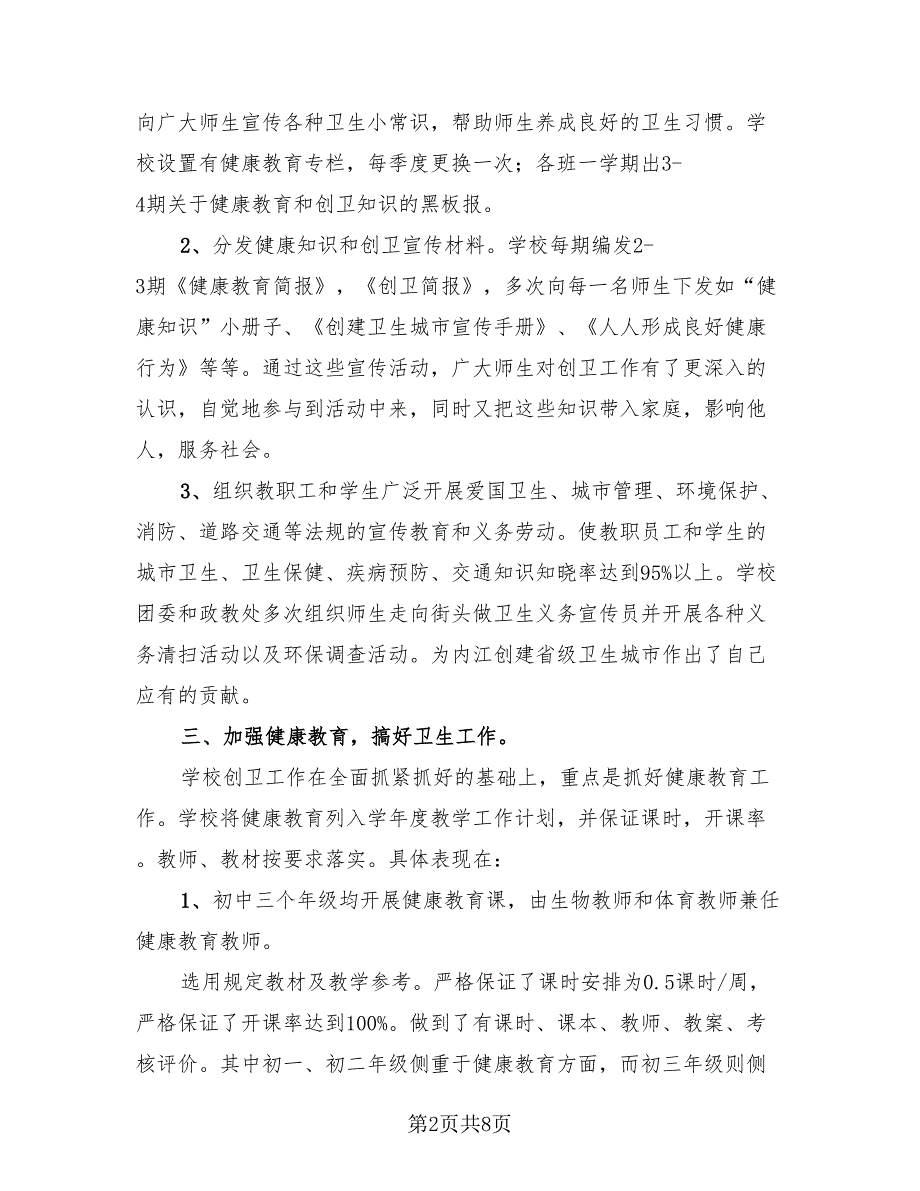 向广大师生宣传各种卫生小常识，帮助师生养成良好的卫生习惯。学
校设置有健康教育专栏，每季度更换一次；各班一学期出3-
4期关于健康教育和创卫知识的黑板报。
2、分发健康知识和创卫宣传材料。学校每期编发2-
3期《健康教育简报》，《创卫简报》，多次向每一名师生下发如“健
康知识”小册子、《创建卫生城市宣传手册》、《人人形成良好健康
行为》等等。通过这些宣传活动，广大师生对创卫工作有了更深入的
认识，自觉地参与到活动中来，同时又把这些知识带入家庭，影响他
人，服务社会。
3、组织教职工和学生广泛开展爱国卫生、城市管理、环境保护、
消防、道路交通等法规的宣传教育和义务劳动。使教职员工和学生的
城市卫生、卫生保健、疾病预防、交通知识知晓率达到95%以上。学校
团委和政教处多次组织师生走向街头做卫生义务宣传员并开展各种义
务清扫活动以及环保调查活动。为内江创建省级卫生城市作出了自己
应有的贡献。
三、加强健康教育，搞好卫生工作。
学校创卫工作在全面抓紧抓好的基础上，重点是抓好健康教育工
作。学校将健康教育列入学年度教学工作计划，并保证课时，开课率
。教师、教材按要求落实。具体表现在：
1、初中三个年级均开展健康教育课，由生物教师和体育教师兼任
健康教育教师。
选用规定教材及教学参考。严格保证了课时安排为0.5课时/周，
严格保证了开课率达到100%。做到了有课时、课本、教师、教案、考
核评价。其中初一、初二年级侧重于健康教育方面，而初三年级则侧
第2页共8页